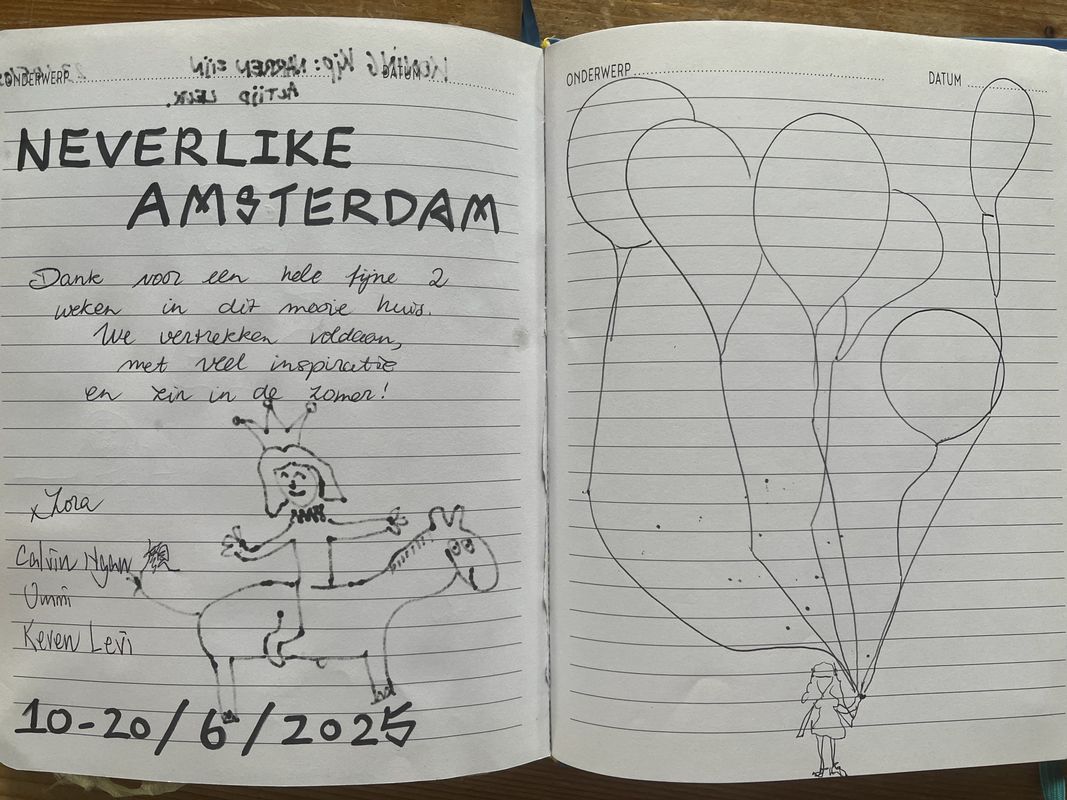 ONDERWERP DATUM
NEVERLIKE
AMSTERDAM
Dank voor een hele fijne 2
weken in dit mooie huis.
We vertrekken voldaan,
met veel inspiratie
en zin in de zomer!
x Zora
Calvin Ngan 顏
Ummi
Keren Levi
10-20/6/2025
ONDERWERP DATUM